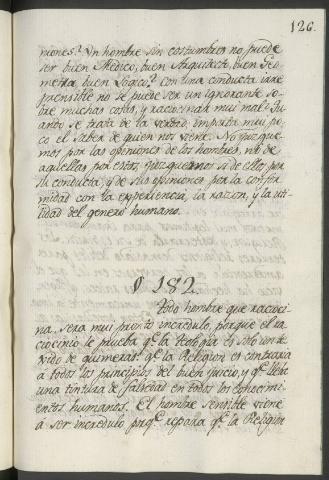 126.
niones? Un hombre sin costumbres no puede
ser buen Medico, buen Arquidecto, buen Geo-
metra, buen Logico? Con una conducta irre
prensible no se puede ser un ignorante so-
bre muchas cosas, y raciocinar mui mal? Qu
ando se trata de la verdad, importa mui po
co el saber de quien nos viene. No juzgue-
mos por las opiniones de los hombres, ni de
aquellas por estos, juzguemos si de ellos por
su conducta, y de sus opiniones por la confor
midad con la experiencia, la razon, y la uti-
lidad del genero humano.
§ 182.
Todo hombre que racioci-
na, sera mui pronto incredulo, porque el ra
ciocinio le prueba qe. la Teologia es solo un te-
xido de quimeras: qe. la Religion es contraria
à todos los principios del buen juicio, y qe. lleba
una tintura de falsedad en todos los conocimi-
entos humanos. El hombre sensible viene
à ser incredulo porqe. repara qe. la Religion